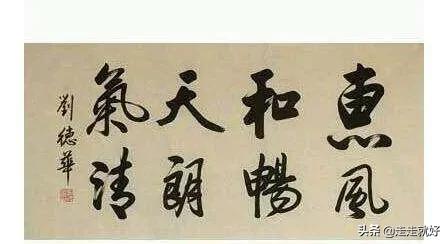 惠風
和暢
天朗
氣清
劉德華
头条 @走走就好